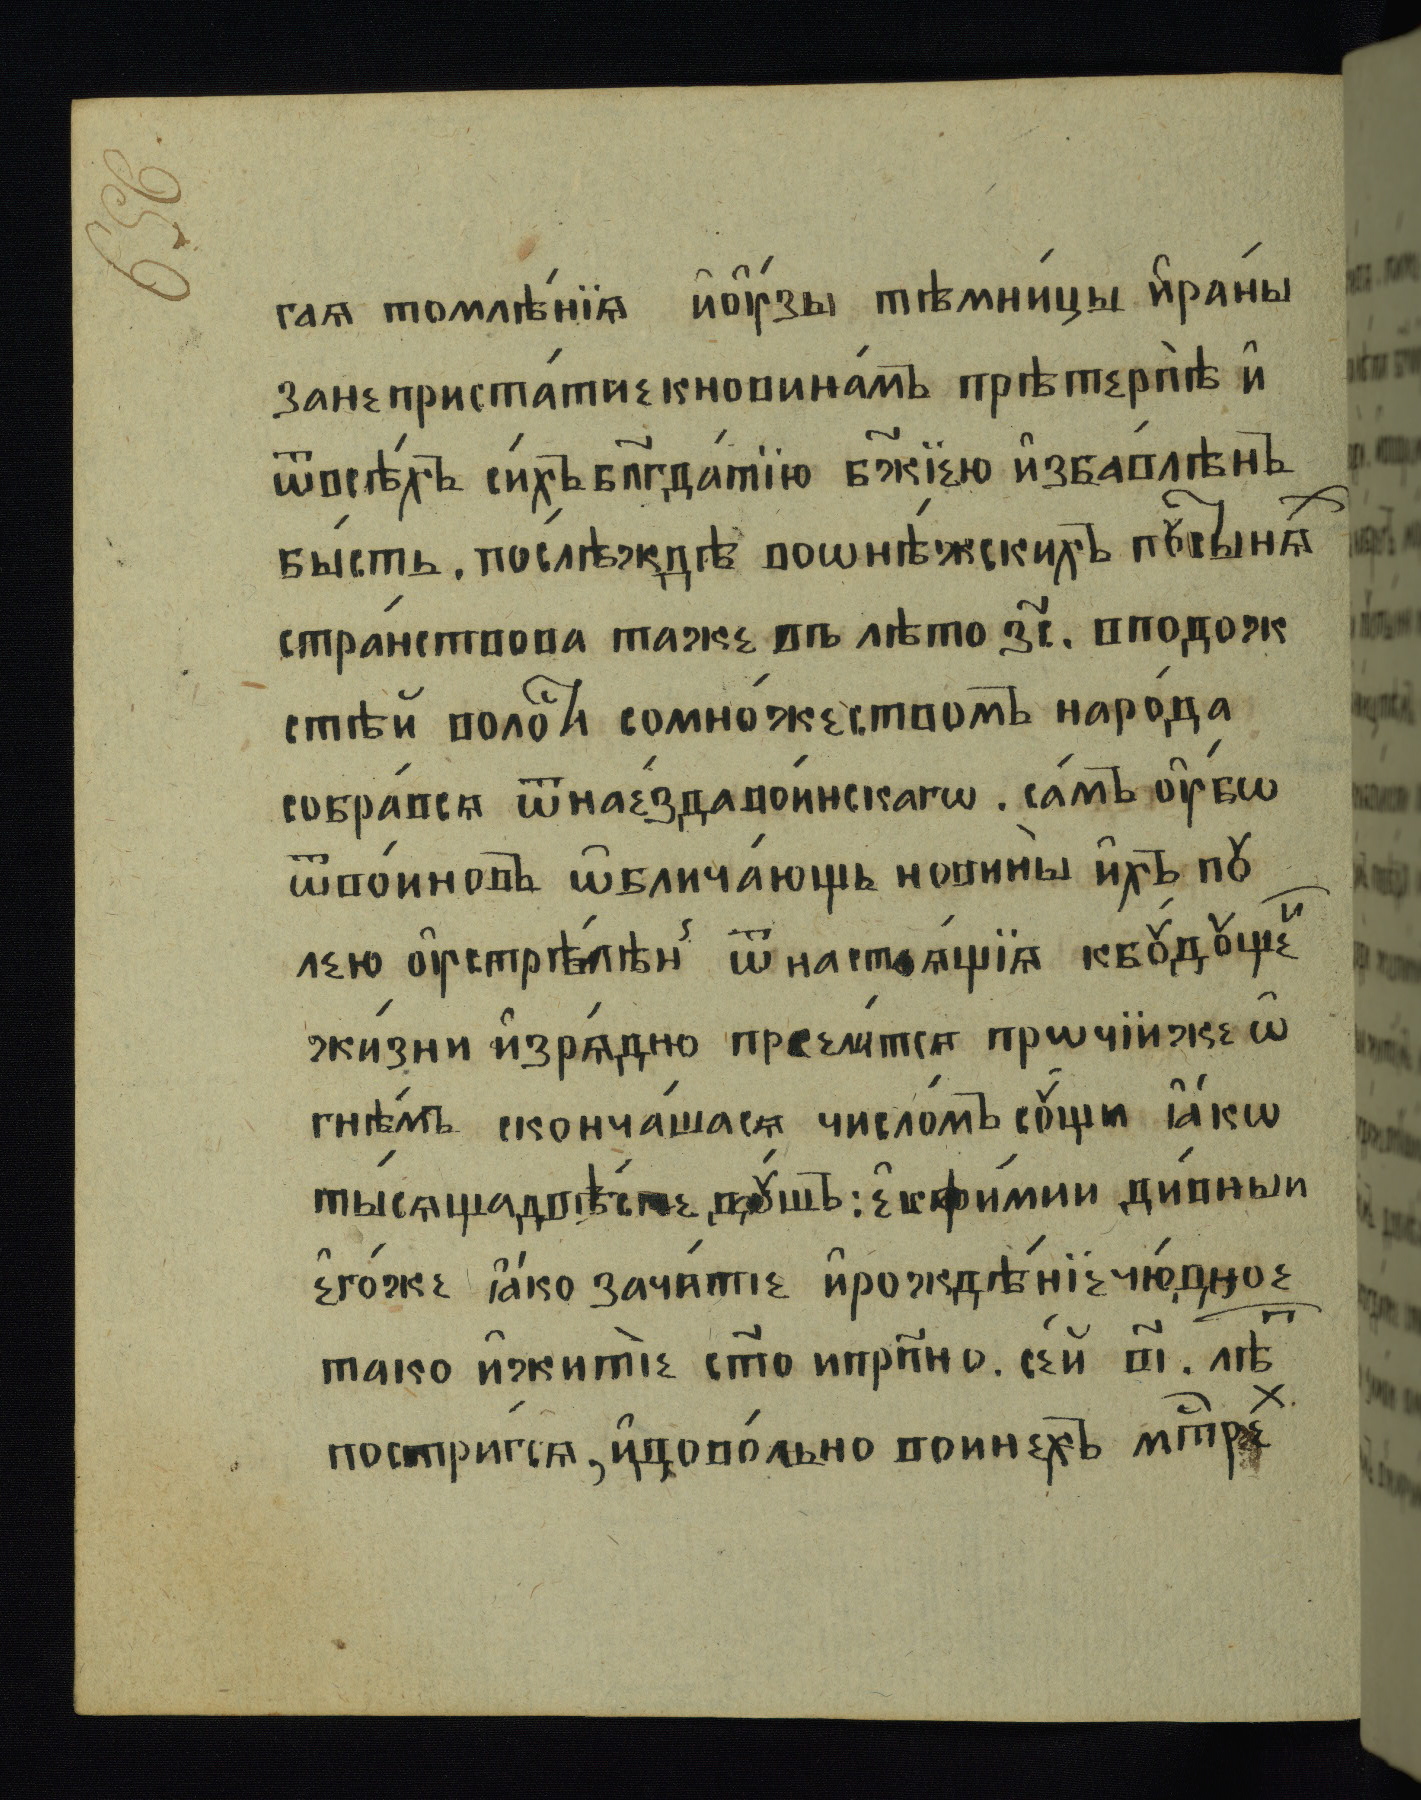 гаѧ томлѣ́нїѧ и҆оу҆́зы тѣмни́цы и҆ра́ны
занепристатиекновина́мъ прѣтерпѣ̀ и҆
ѿвсѣ́хъ си́хъ бл҃гда́тїю бж҃їею и҆збавлѣнъ
бы́сть. по́слѣждѣ воѡнѣ́жскихъ пꙋ́стынѧⷯ
стра́нствова таже въ лѣто зс҃. вподож
стѣй воло́сти сомно́жествомъ наро́да
собра́всѧ ѿнае́здавои́нскагѡ. са́мъ оу҆́бѡ
ѿво́иновъ ѡ҆блича́ющь новины̀ и҆́хъ пꙋ
лею оу҆стрѣ́лѣн ѿ настоѧ́щїѧ кбꙋ́дꙋщеⷤи
жи́зни и҆зрѧ́дно преели́тсѧ прѡчїиже ѡ҆
гнѣ́мъ сконча́шасѧ число́мъ сꙋ́щи ꙗ҆́кѡ
ты́сѧщадвѣ́сте дꙋ́шъ: є҆вфи́мии ди́вныи
є҆го́же ꙗ҆́ко зача́тїе и҆рождѣ́нїе чю́дное
тако и҆житїѐ ст҃о ипрп҃но. се́й в҃і. лѣⷮ
постри́гсѧ, и҆дово́льно воинехъ мⷭ҇тре́ⷯ